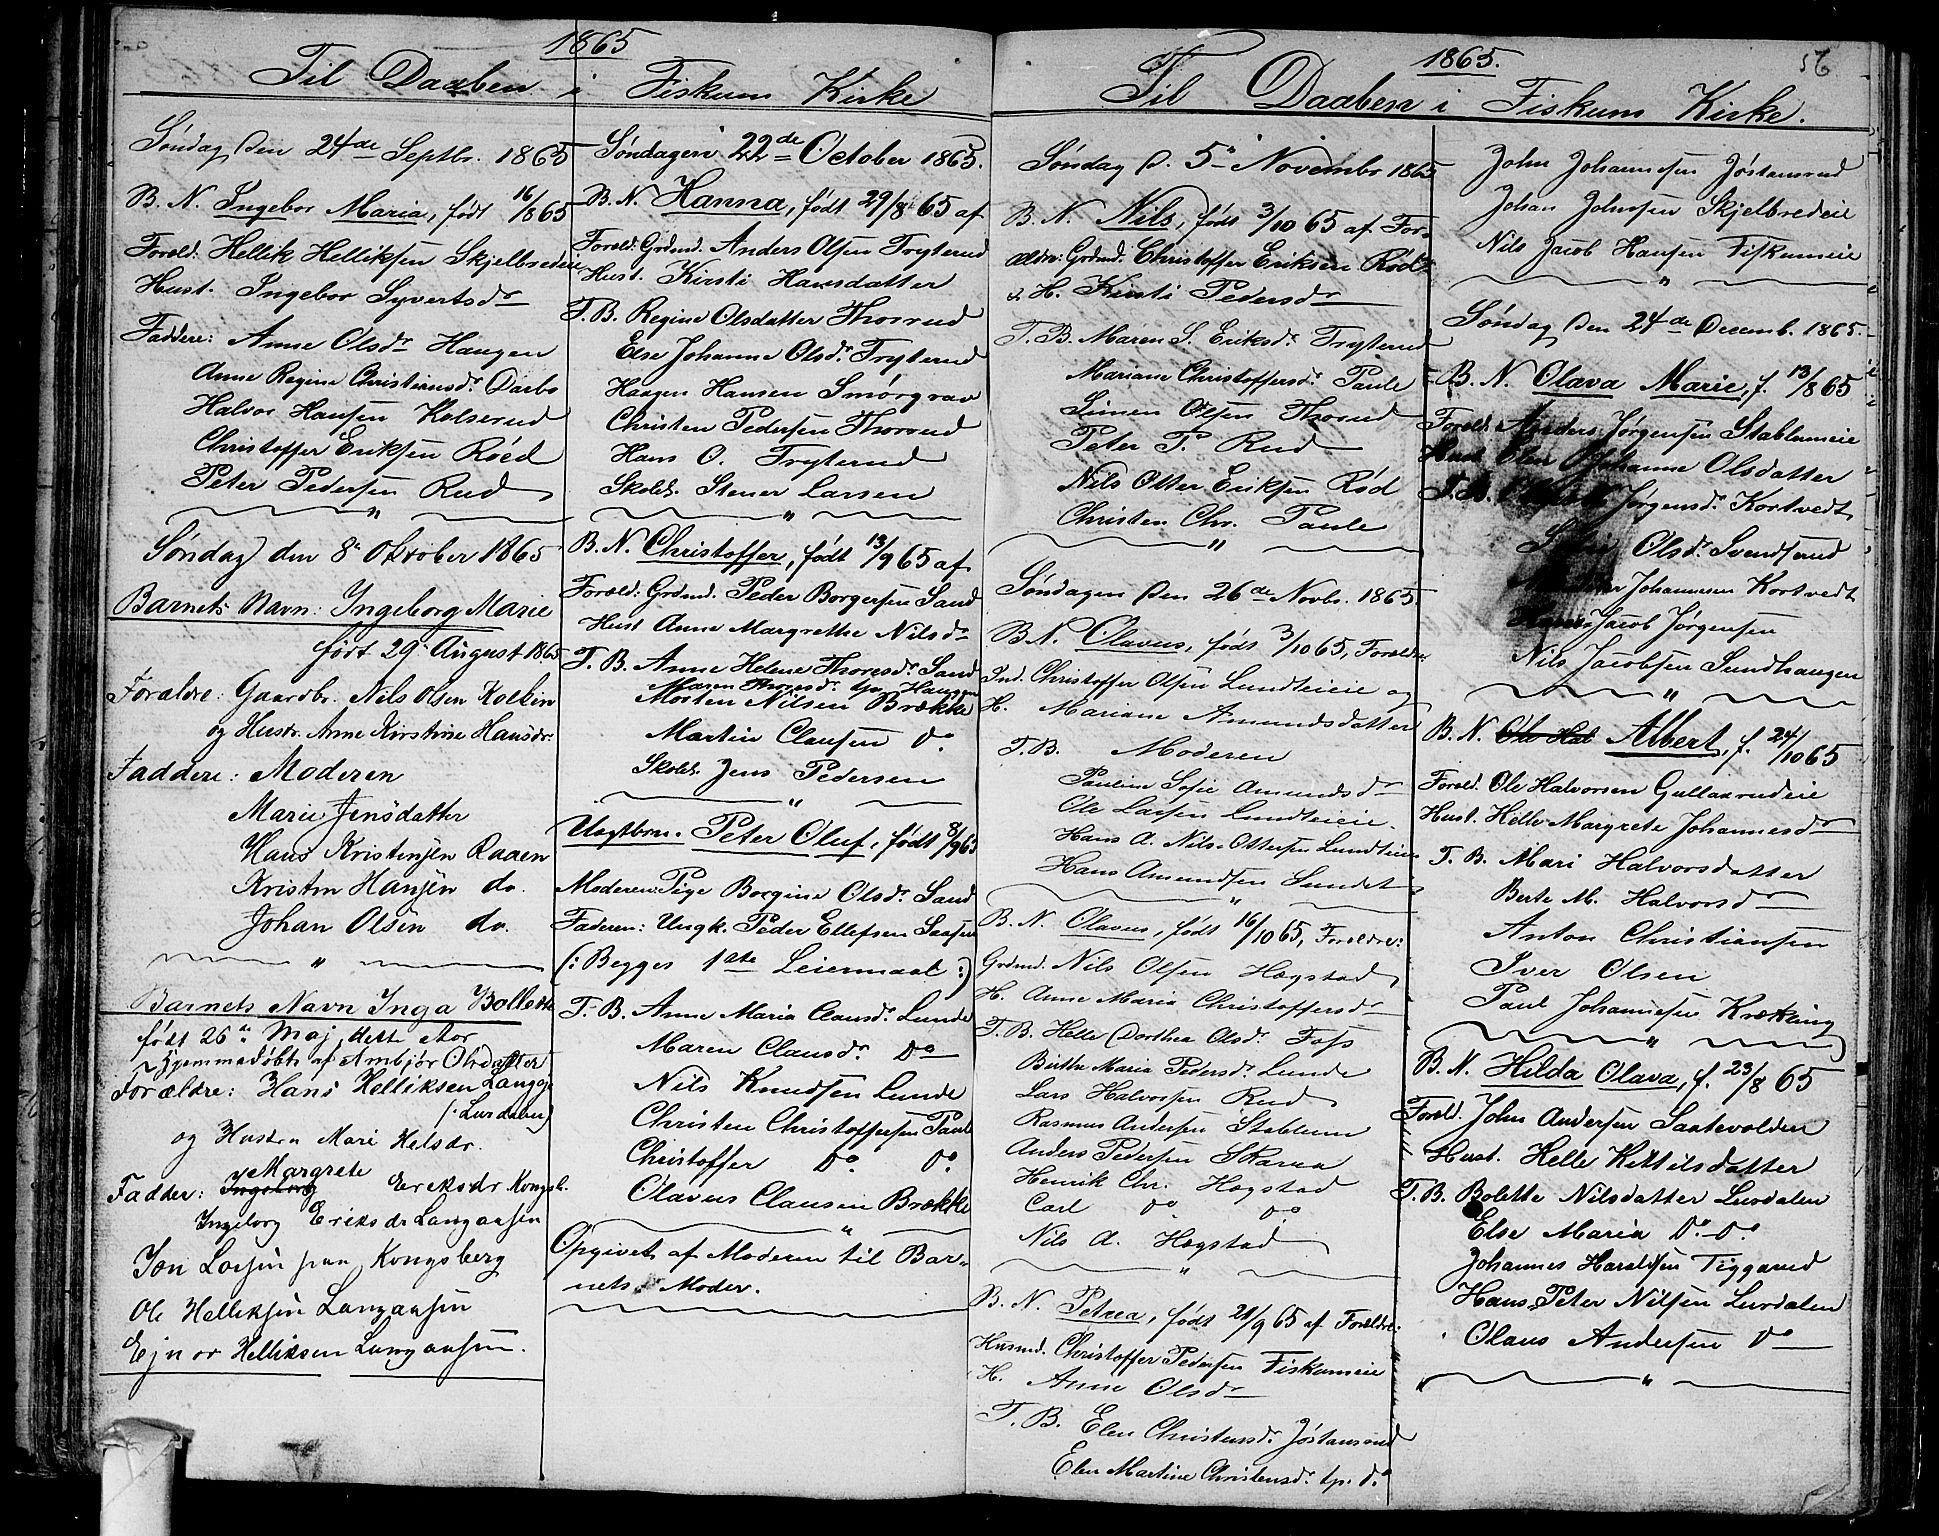 1865
Til Daaben i Fiskum Kirke
Søndag den 24de Septbr. 1865
B. N. Ingebor Maria, født 16/8 65
Foræld: Hellik Helliksen Skjelbredeie
Hust. Ingebor Syvertsdr
Faddere: Anne Olsdr Haugen
Anne Regine Christiansdr. Darbo
Halvor Hansen Kolserud
Christoffer Eriksen Røed
Peter Pedersen Rud
"
Søndag den 8de Oktober 1865
Barnets Navn: Ingeborg Marie
født 29 August 1865
Forældre: Gaardbr. Nils Olsen Kolbin
og Hustr. Anne Kirstine Hansdr.
Faddere: Moderen
Marie Jensdatter
Hans Kristensen Raaen
Kristen Hansen do.
Johan Olsen do.
"
Barnets Navn Inga Bollette
født 26de Maj dette Aar
Hjemmedøbt af Ambjør Olsdatter
Forældre: Hans Helliksen Langaa
(: Lurdalen)
og Hustru Mari Nelsdr.
Margrete
Fadder: Ingeborg Eriksdr Kongsb.
Ingeborg Eriksdr Langaasen
Jon Larsen paa Kongsberg
Ole Helliksen Langaasen
Ejnor Helliksen Langaasen.
Søndagen 22de October 1865.
B. N. Hanna, født 29/8 65 af
Foræld: Grdmd. Anders Olsen Tryterud
Hust. Kirsti Hansdatter
F. B. Regine Olsdatter Thorrud
Else Johanne Olsdr. Tryterud
Haagen Hansen Smørgrav
Christen Pedersen Thorrud
Hans O. Tryterud
Skoleh. Stener Larsen
"
B. N. Christoffer, født 13/9 65 af
Foræld: Grdmd. Peder Borgersen Sand
Hust Anne Margrethe Nilsdr
F. B. Anne Helene Thoresdr. Sand
Maren Thoresdr. tp. Haugen
Morten Nilsen Brække
Martin Clausen Do.
Skoleh. Jens Pedersen
"
Uægtbrn. Peter Oluf, født 8/9 65
Moderen: Pige Borgine Olsdr. Sand
Faderen: Ungk. Peder Ellefsen Saasen
(: Begges 1ste Leiermaal :)
F. B. Anne Maria Clausdr. Lunde
Maren Clausdr. Do
Nils Knudsen Lunde
Christen Christoffersen Paule
Christoffer Do. Do.
Olavus Clausen Brække
"
Opgivet af Moderen til Bar-
nets Moder.
1865.
56
Til Daaben i Fiskum Kirke.
Søndag d. 5te Novembr 1865
B. N. Nils, født 3/10 65 af For-
ældre: Grdmd. Christoffer Eriksen Rød
& H. Kirsti Pedersdr
F. B. Maren S. Eriksdr. Tryterud
Mariane Christoffersdr. Paule
Simen Olsen Thorud
Peter P. Rud
Nils Otter Eriksen Rød
Christen Chr. Paule
"
Søndagen den 26de Novbr. 1865.
B. N. Olavus, født 3/10 65, Forældre
Ind. Christoffer Olsen Lundteieie og
H. Mariane Amundsdatter
F. B. Moderen
Pauline Sofie Amundsdr
Ole Larsen Lundteieie.
Hans A. Nils-Ottersen Lundteieie
Hans Amundsen Sundet
"
B. N. Olavus, født 16/10 65, Forældre:
Grdmd. Nils Olsen Hægstad
H. Anne Maria Christoffersdr
F. B. Helle Dorthea Olsdr. Foss
Birthe Maria Pedersdr Lunde
Lars Halvorsen Rud
Rasmus Andersen Stablum
Anders Pedersen Skarra
Henrik Chr. Hægstad
Carl Do Do
Nils A. Hægstad
"
B. N. Petrea, født 21/9 65 af Forældre:
Husmd. Christoffer Pedersen Fiskumeie
H. Anne Olsdr
F. B. Elen Christensdr. Jøstansrud
Elen Martine Christensdr. tp. do
John Johannesen Jøstansrud
Johan Johnsen Skjelbredeie
Nils Jacob Hansen Fiskumeie
"
Søndag den 24de Decemb. 1865.
B. N. Olava Marie, f. 13/8 65
Foræld: Anders Jørgensen Stablumeie
Hust. Elen Johanne Olsdatter
F. B. Jørgensdr. Kortvedt
Olsdr. Svendsrud
Johannesen Kortvedt
Hans Jacob Jørgensen
Nils Jacobsen Sundhaugen
"
B. N. Ole Hal Albert, f. 24/10 65
Foræld. Ole Halvorsen Gullaarudeie
Hust. Helle Margrete Johannesdr
F. B. Mari Halvorsdatter
Berte M. Halvorsdr
Anton Christiansen
Iver Olsen
Paul Johannesen Krækling
"
B. N. Hilda Olava, f. 23/8 65
Foræld. John Andersen Saatevolden
Hust. Helle Kittilsdatter
F. B. Bolette Nilsdatter Lurdalen
Else Maria Do. Do.
Johannes Haraldsen Tiggarud
Hans Peter Nilsen Lurdalen
Olaus Andersen Do
"